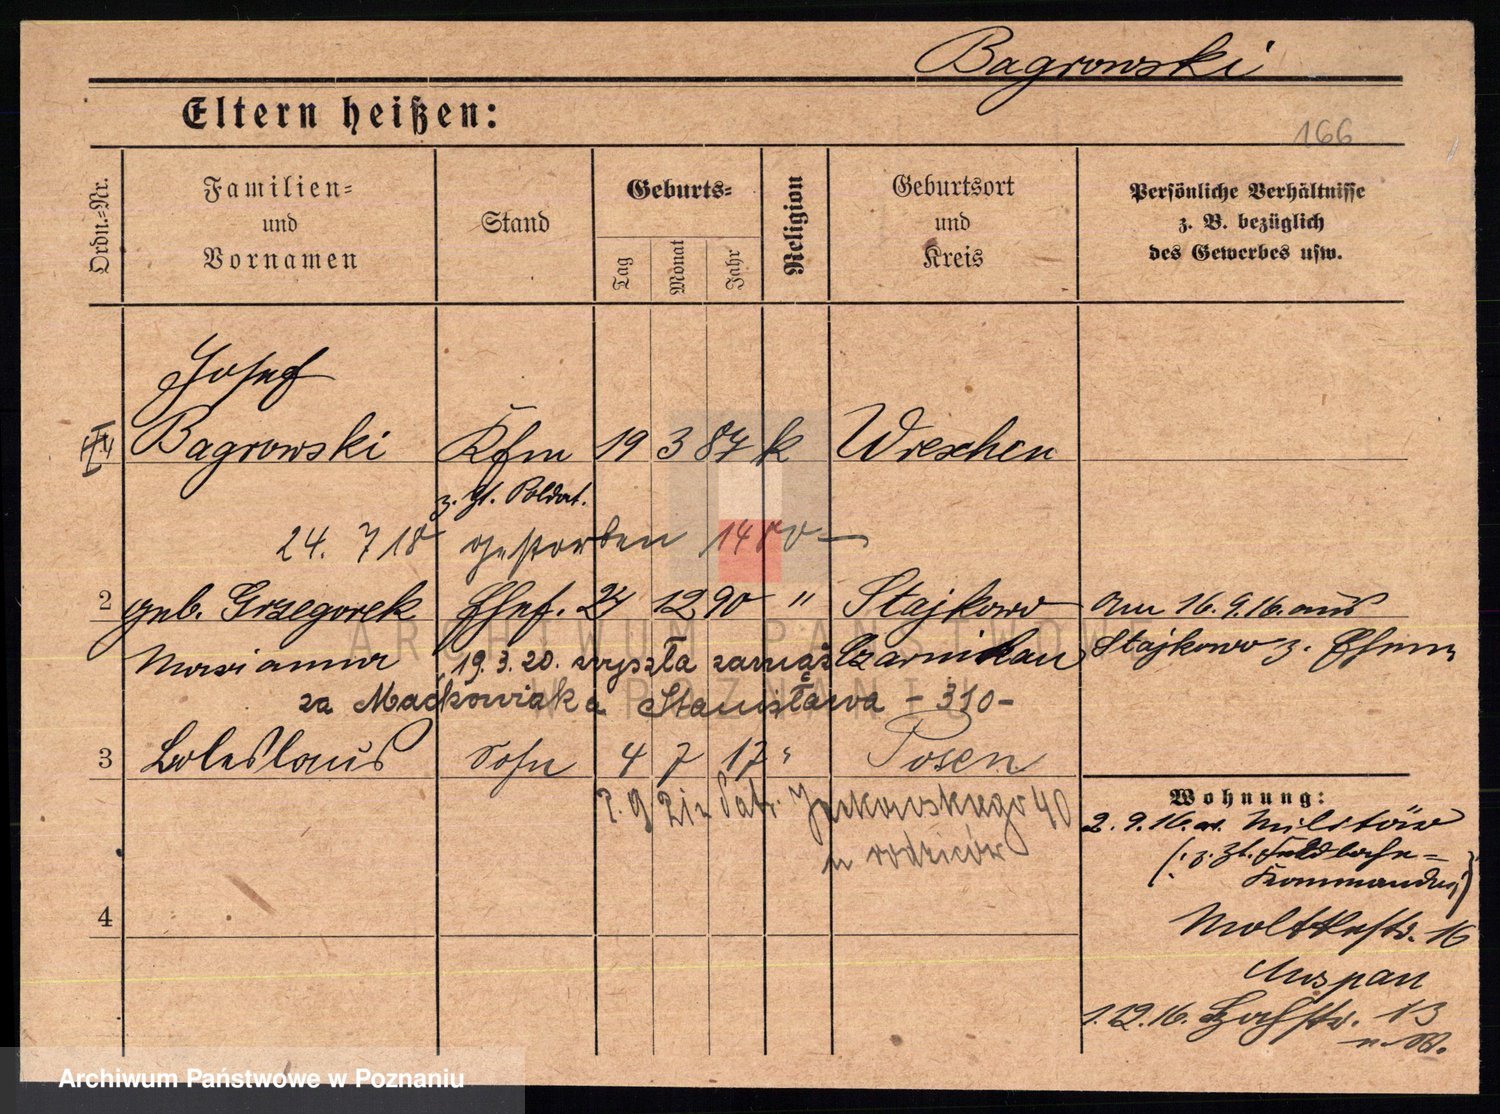 Bagrowski
Eltern heißen:
166
Ordn.=Nr.
Familien=
und
Vornamen
Stand
Geburts=
Tag
Monat
Jahr
Religion
Geburtsort
und
Kreis
Persönliche Verhältnisse
z. B. bezüglich
des Gewerbes usw.
Josef
Bagrowski Kfm 19 3 87 k Wreschen
z. Zt. Soldat.
24. 7 18 gestorben
2 geb. Grzegorek Ehef. 27 12 90 " Stajkowo Am 16. 9. 16. aus
Marianna 19. 3. 20. wyszła zamąż Czarnikau Stajkowo z. Ehem.
za Maćkowiaka Stanisława - 310 -
3 Boleslaus Sohn 4 7 17 " Posen
Jackowskiego 40
u rodziców
4
Wohnung:
2. 9. 16. Militär
(: z. Zt. Feldbahn=
Kommando :)
Moltkestr. 16
Anspan
1. 12. 16. 13
Archiwum Państwowe w Poznaniu
ARCHIWUM PAŃSTWOWE
W POZNANIU